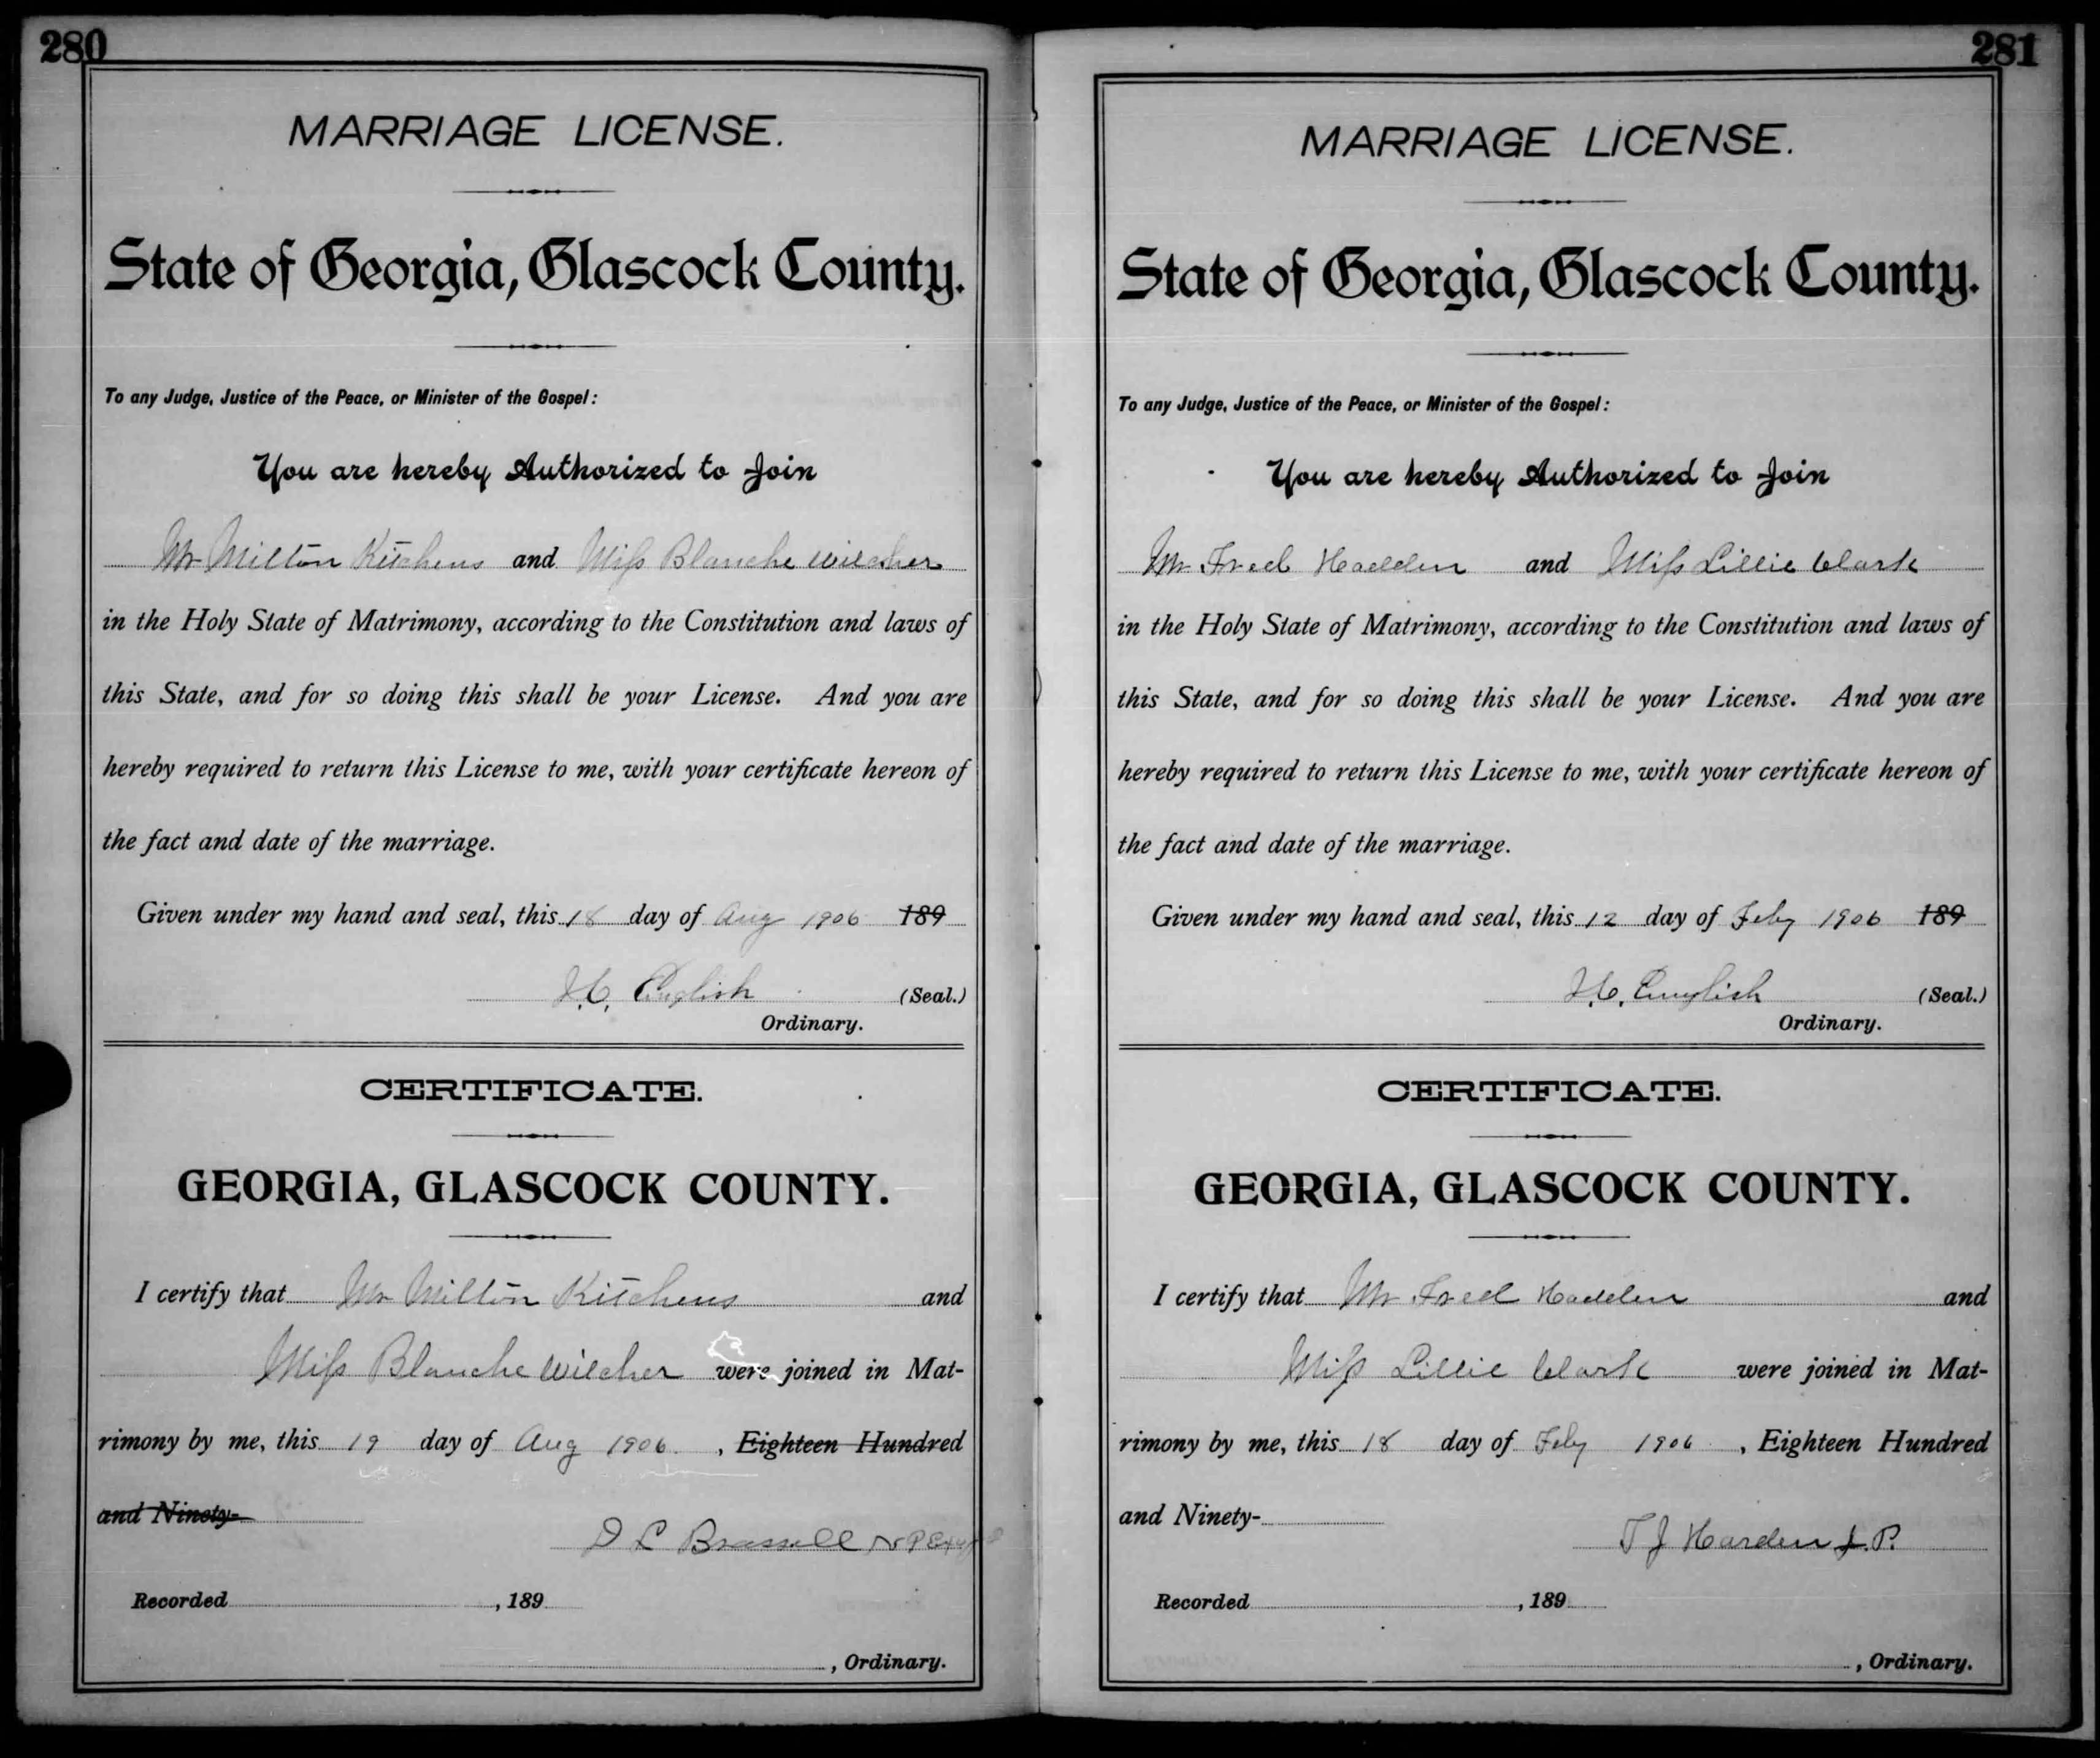 280
MARRIAGE LICENSE.
State of Georgia, Glascock County.
To any Judge, Justice of the Peace, or Minister of the Gospel:
You are hereby Authorized to Join
Mr Milton Kitchens and Miss Blanche Wilcher
in the Holy State of Matrimony, according to the Constitution and laws of
this State, and for so doing this shall be your License. And you are
hereby required to return this License to me, with your certificate hereon of
the fact and date of the marriage.
Given under my hand and seal, this 18 day of Aug 1906 189
English (Seal.)
Ordinary.
CERTIFICATE.
GEORGIA, GLASCOCK COUNTY.
I certify that Mr Milton Kitchens and
Miss Blanche Wilcher were joined in Mat-
rimony by me, this 19 day of Aug 1906, Eighteen Hundred
and Ninety-
D L Brassell N P
Recorded , 189
, Ordinary.
281
MARRIAGE LICENSE.
State of Georgia, Glascock County.
To any Judge, Justice of the Peace, or Minister of the Gospel:
You are hereby Authorized to Join
Mr Fred Hadden and Miss Lillie Clark
in the Holy State of Matrimony, according to the Constitution and laws of
this State, and for so doing this shall be your License. And you are
hereby required to return this License to me, with your certificate hereon of
the fact and date of the marriage.
Given under my hand and seal, this 12 day of Feby 1906 189
English (Seal.)
Ordinary.
CERTIFICATE.
GEORGIA, GLASCOCK COUNTY.
I certify that Mr Fred Hadden and
Miss Lillie Clark were joined in Mat-
rimony by me, this 18 day of Feby 1906, Eighteen Hundred
and Ninety-
T J Harden J.P.
Recorded , 189
, Ordinary.